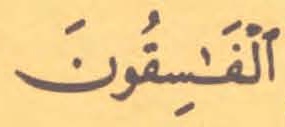 ٱلْفَـٰسِقُونَ